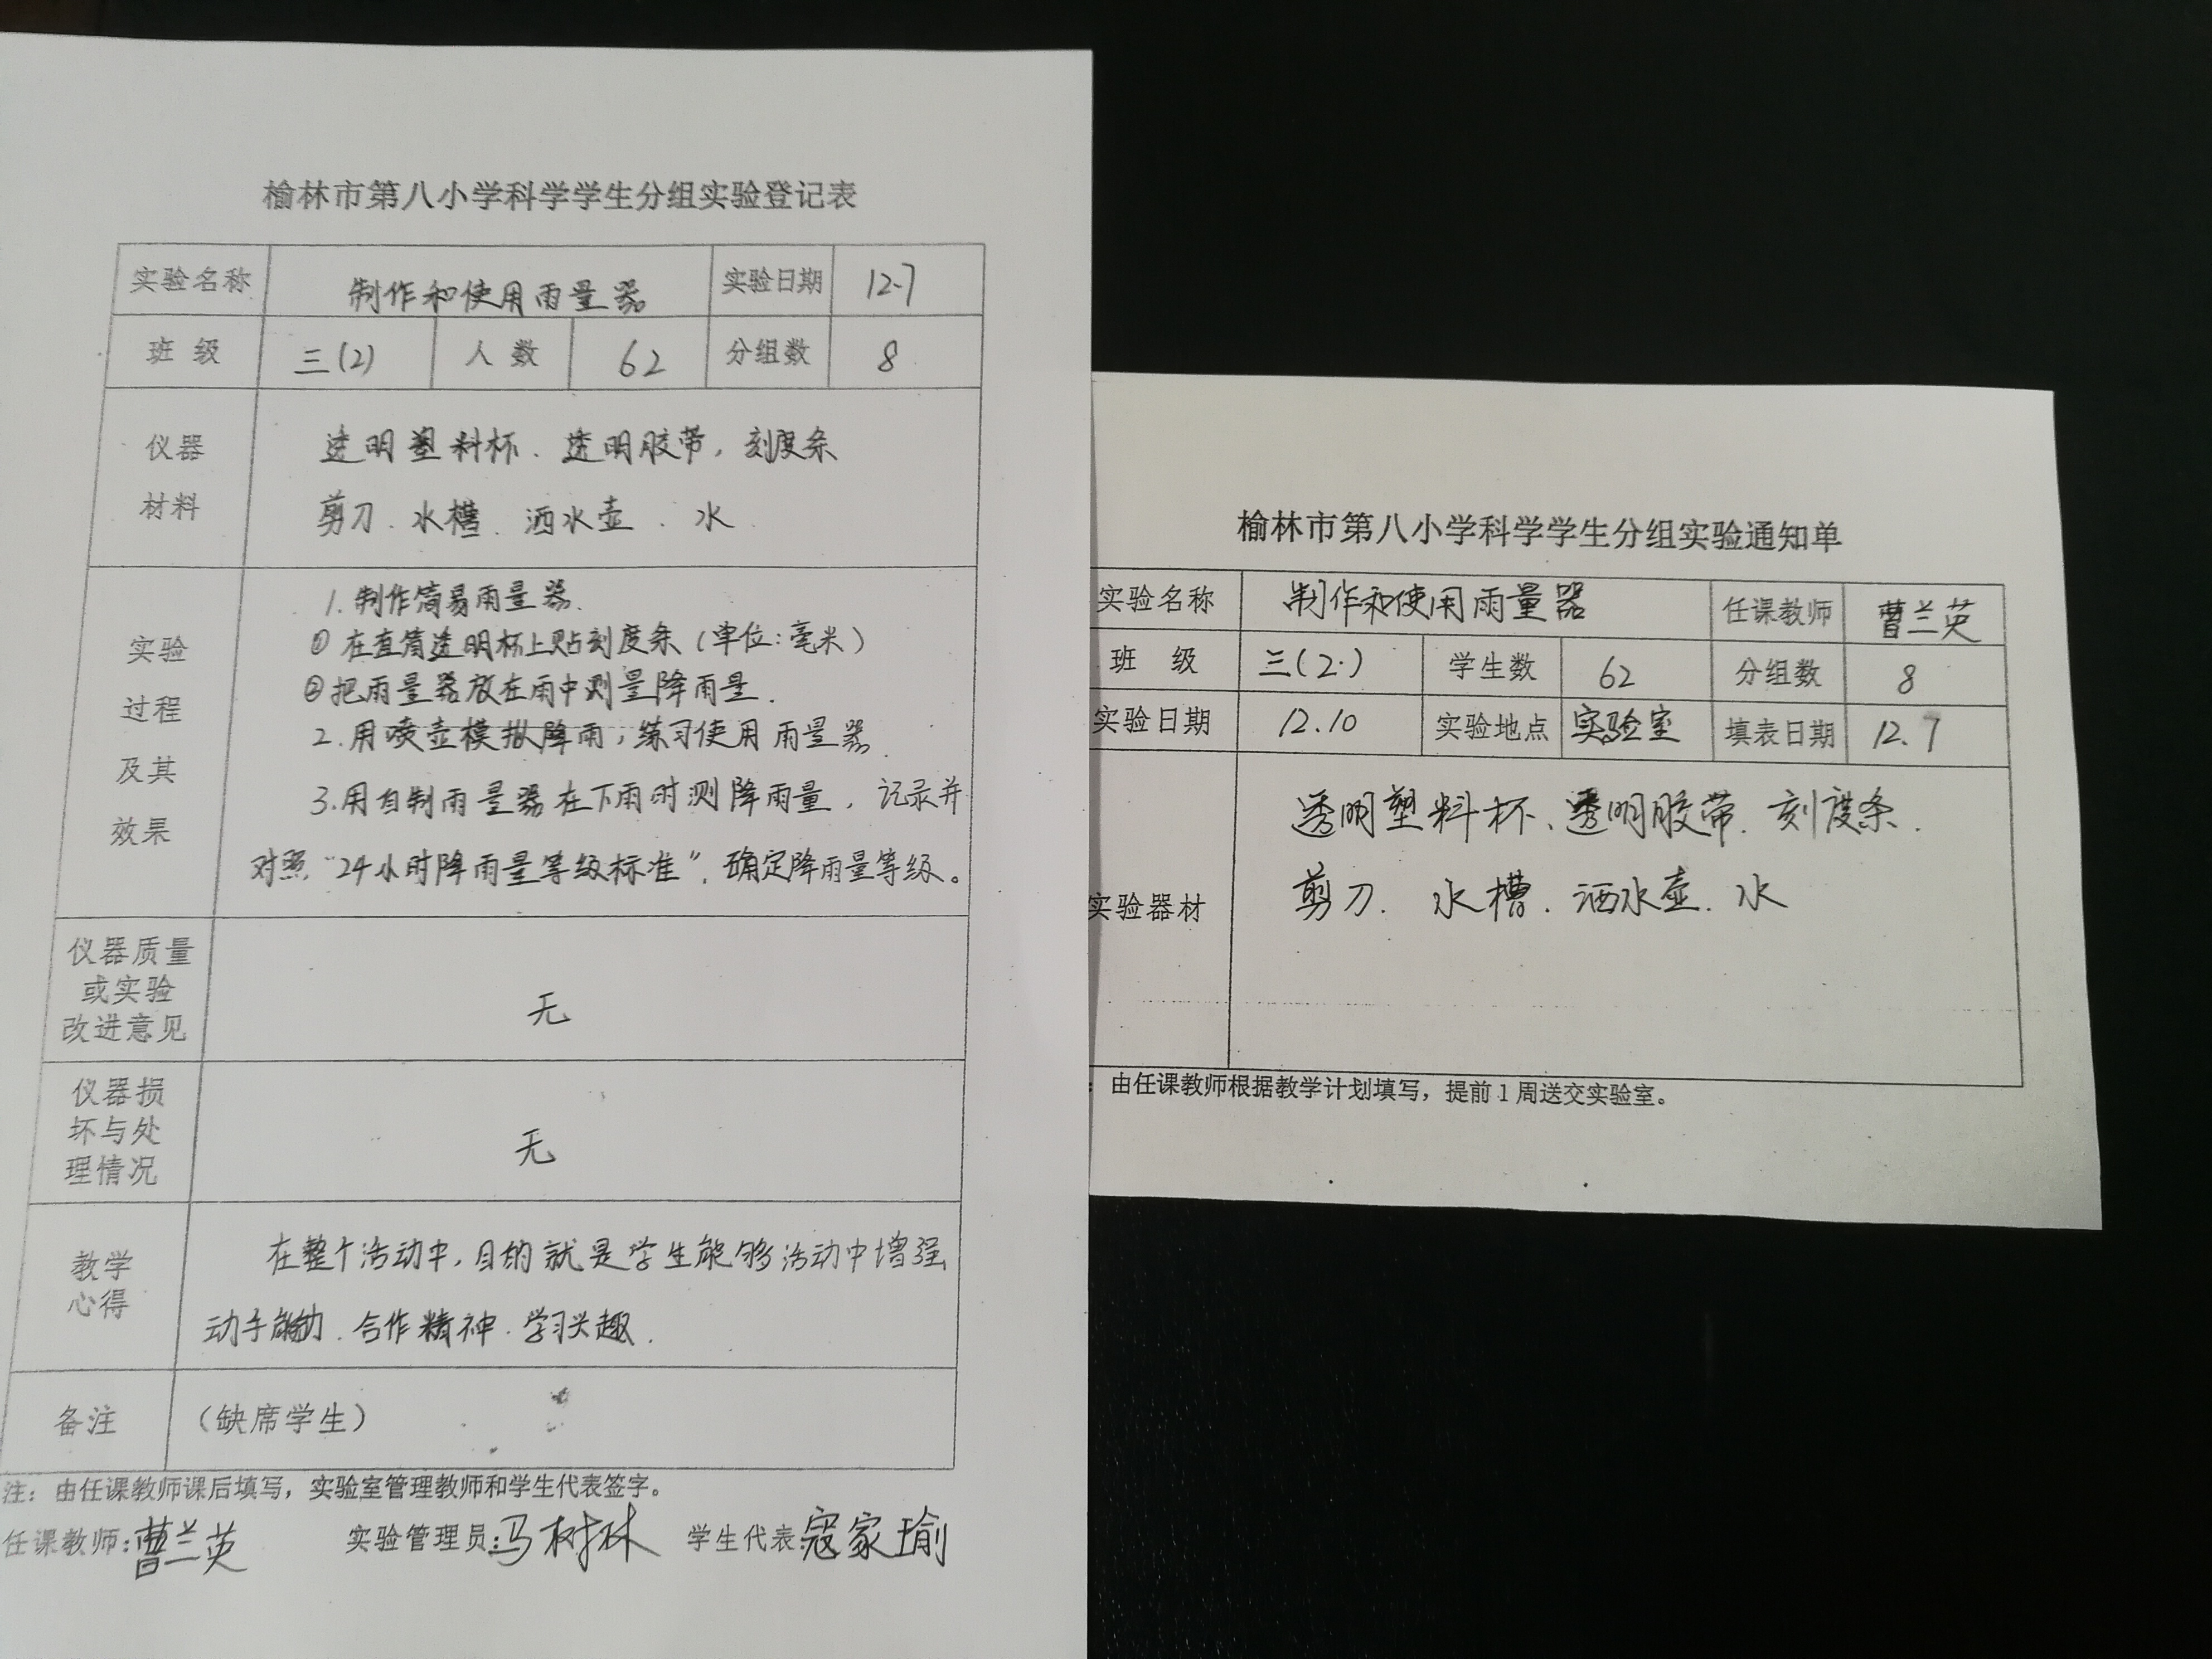 榆林市第八小学科学学生分组实验登记表
实验名称 制作和使用雨量器 实验日期 12.7
班 级 三(2) 人 数 62 分组数 8
仪器
材料
透明塑料杯、透明胶带，刻度条
剪刀、水槽、洒水壶、水
实验
过程
及其
效果
1.制作简易雨量器.
①在直筒透明杯上贴刻度条（单位:毫米）
②把雨量器放在雨中测量降雨量.
2.用喷壶模拟降雨，练习使用雨量器.
3.用自制雨量器在下雨时测降雨量，记录并
对照“24小时降雨量等级标准”，确定降雨量等级。
仪器质量
或实验
改进意见
无
仪器损
坏与处
理情况
无
教学
心得
在整个活动中,目的就是学生能够活动中增强
动手能力、合作精神、学习兴趣.
备注 （缺席学生）
注：由任课教师课后填写，实验室管理教师和学生代表签字。
任课教师:曹兰英 实验管理员:马树林 学生代表:寇家瑜
榆林市第八小学科学学生分组实验通知单
实验名称 制作和使用雨量器 任课教师 曹兰英
班 级 三(2.) 学生数 62 分组数 8
实验日期 12.10 实验地点 实验室 填表日期 12.7
实验器材
透明塑料杯、透明胶带、刻度条.
剪刀. 水槽. 洒水壶. 水
：由任课教师根据教学计划填写，提前1周送交实验室。